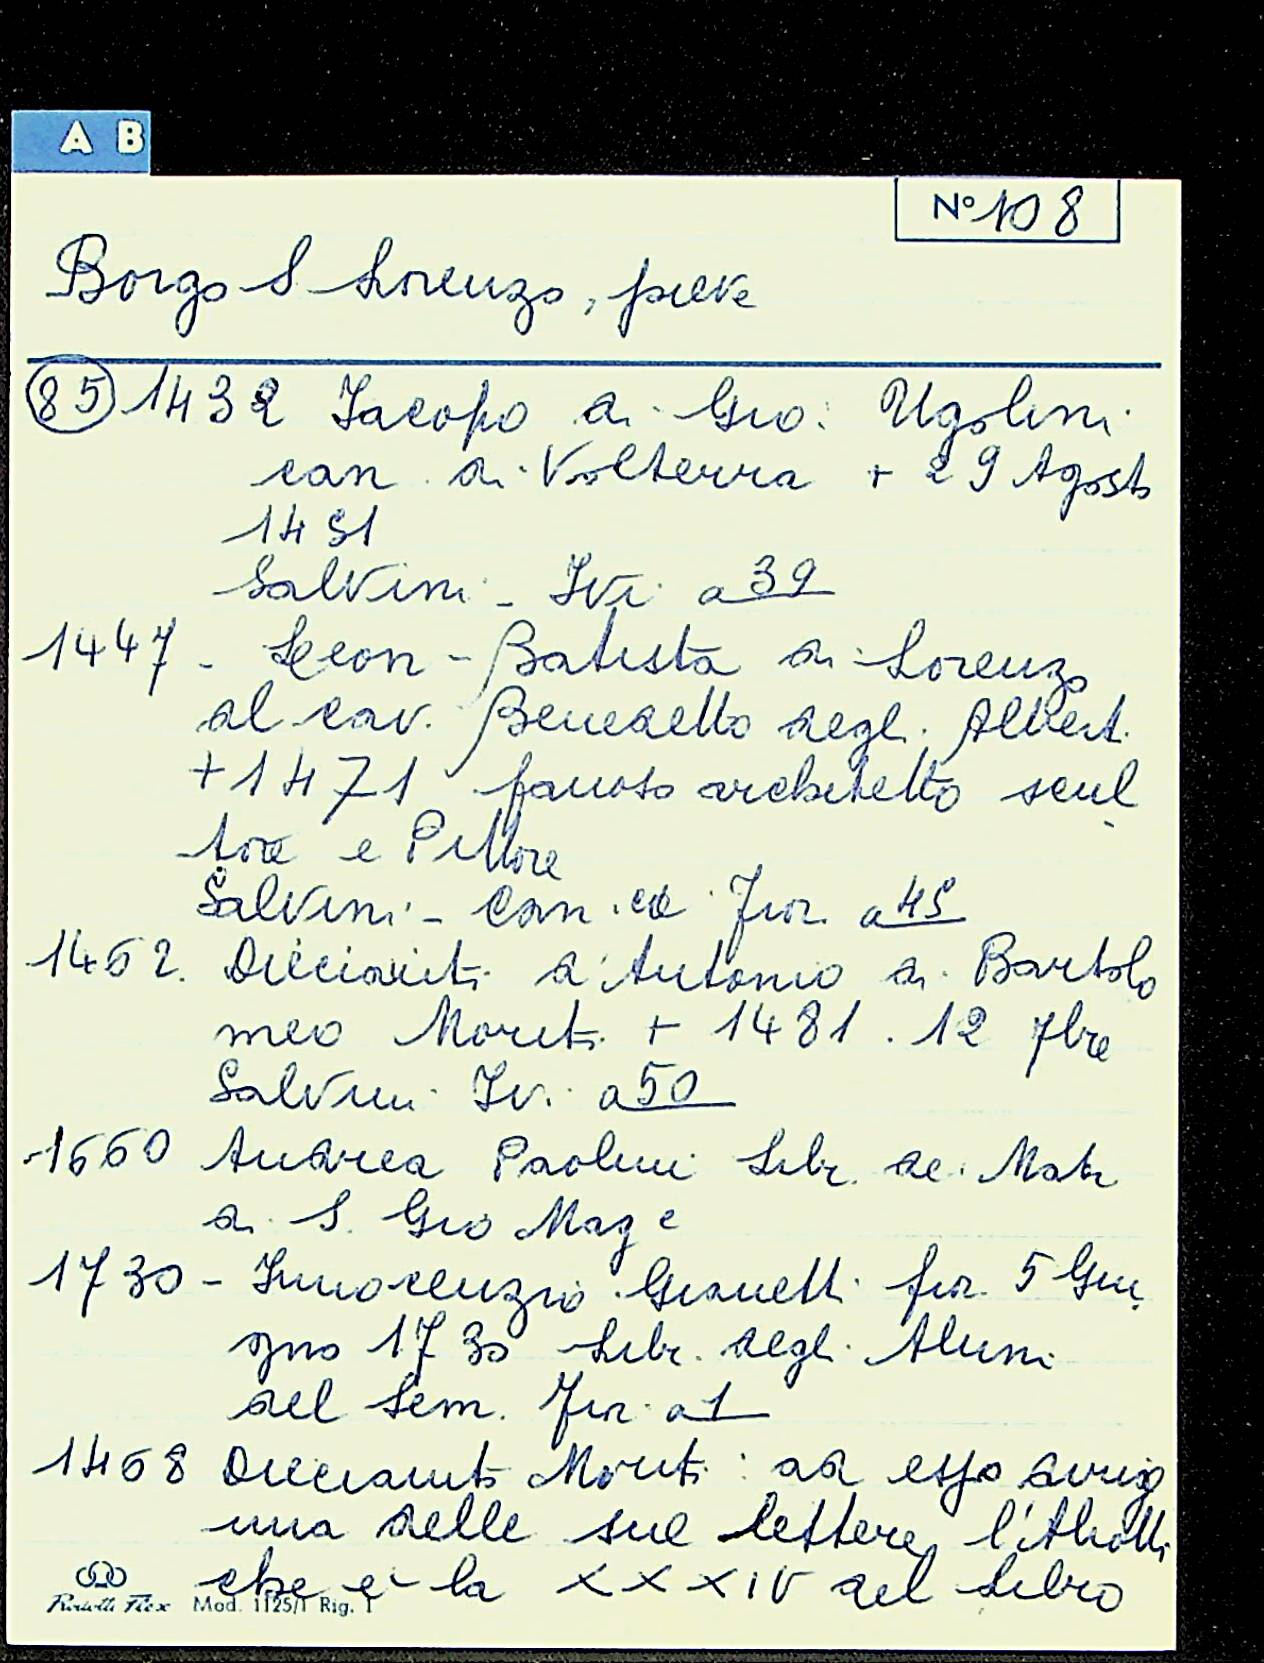 A B
N° 108
Borgo S Lorenzo, pieve
85 1432 Iacopo di Gio: Ugolini
can di Volterra + 29 Agosto
1451
Salvini - Ivi a 39
1447 - Leon-Batista di Lorenzo
del cav. Benedetto degl. Albert.
+1471 famoso architetto scul
tore e Pittore
Salvini - Can. Fior. a 45
1462. Dieciaiuti d'Antonio di Bartolo
meo Moruti + 1481. 12 7bre
Salvini Ivi a 50
1660 Andrea Paolini Libr. de Matr
di S. Gio Mag e
1730 - Innocenzio Gianetti fior. 5 Giu
gno 1730 Libr. degl. Alunni
del Sem. Fior. a 1
1468 Dieciaiuti Moruti: ad esso
una delle sue lettere l'Aliotti
che e la XXXIV del Libro
Mod. 1125/1 Rig. 1